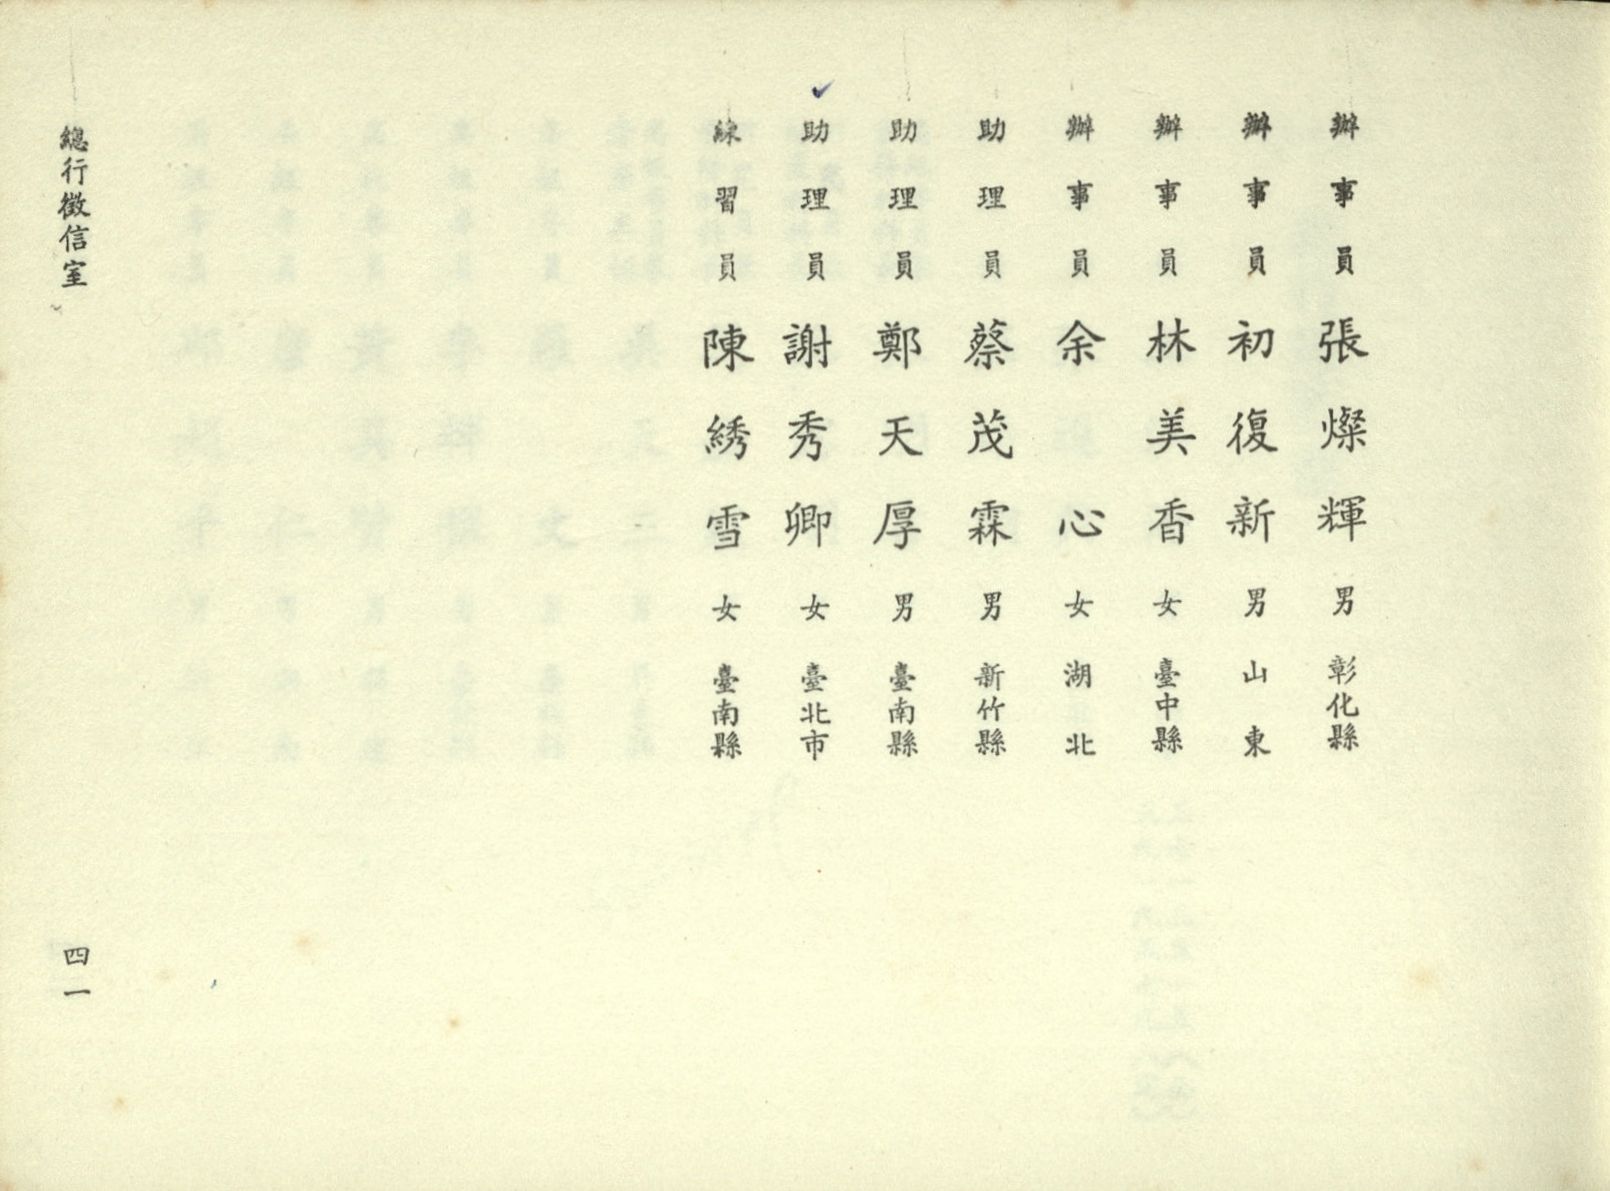 辦事員 張燦輝 男 彰化縣
辦事員 初復新 男 山東
辦事員 林美香 女 臺中縣
辦事員 余心 女 湖北
助理員 蔡茂霖 男 新竹縣
助理員 鄭天厚 男 臺南縣
助理員 謝秀卿 女 臺北市
練習員 陳綉雪 女 臺南縣
總行徵信室
四一